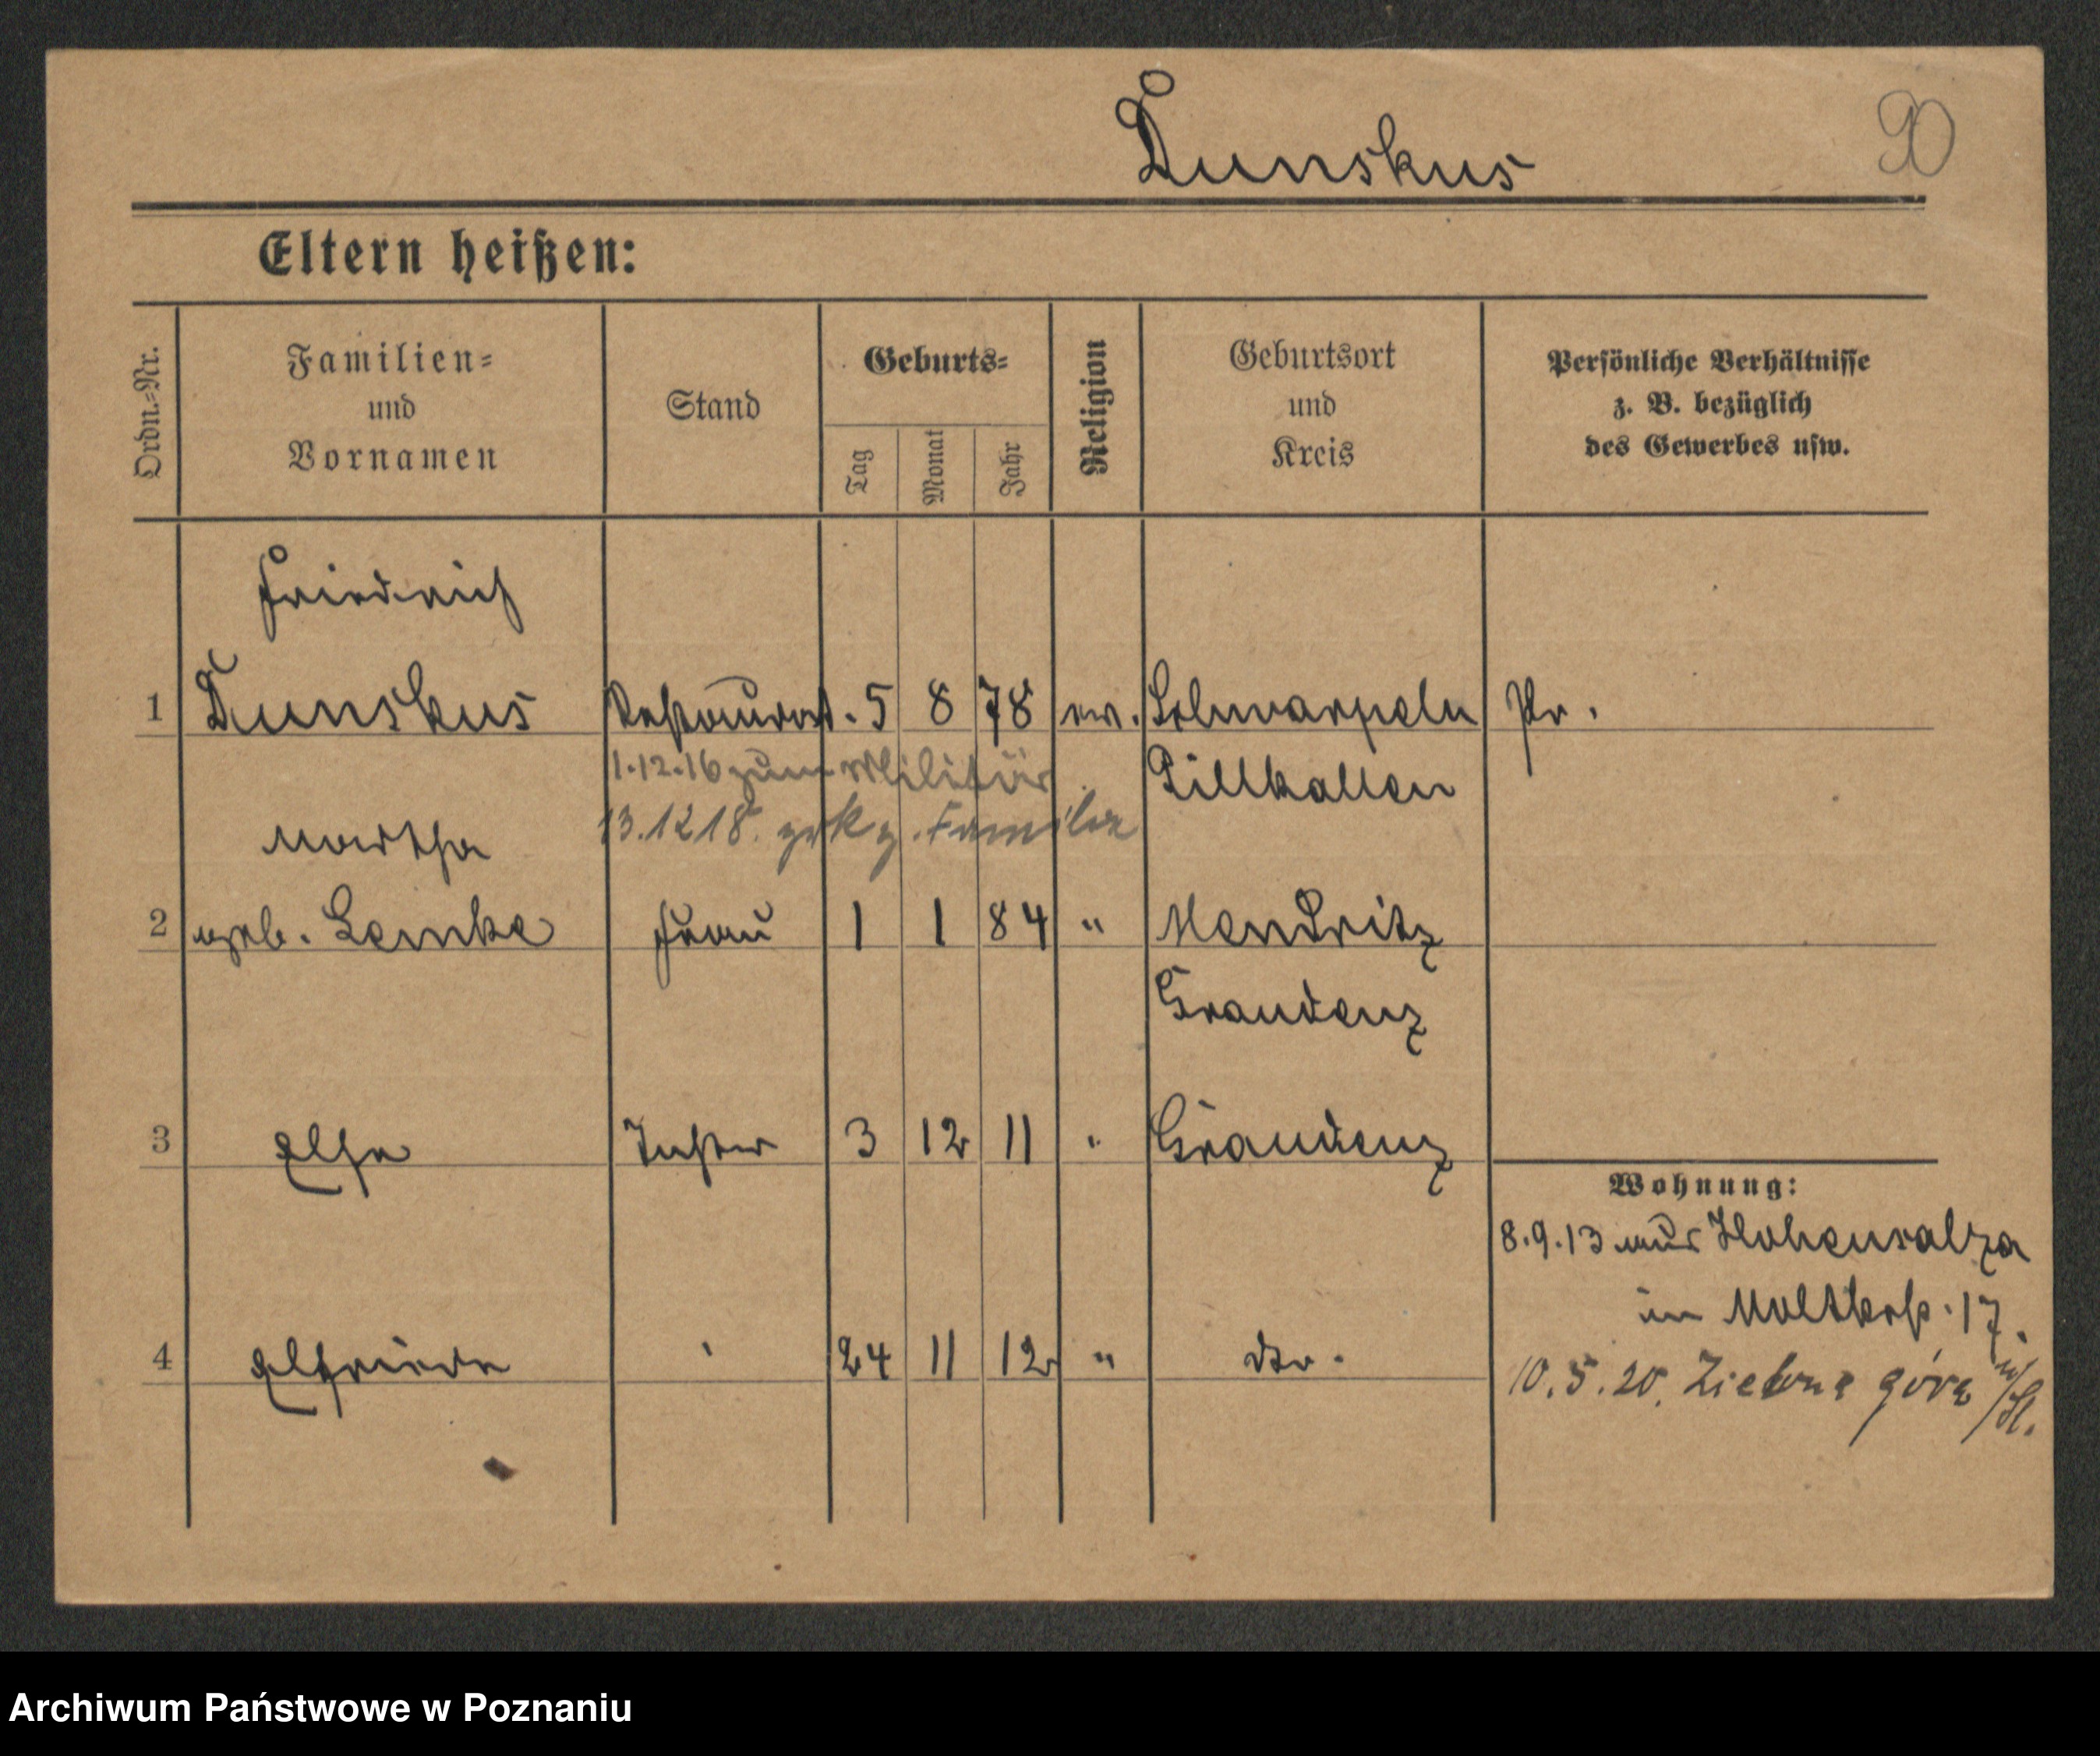 Dunskus
90
Eltern heißen:
Ordn.-Nr.
Familien-
und
Vornamen
Stand
Geburts-
Tag
Monat
Jahr
Religion
Geburtsort
und
Kreis
Persönliche Verhältnisse
z. B. bezüglich
des Gewerbes usw.
Friedrich
1 Dunskus Restaurat. 5 8 78 ev. Pr.
1.12.16 zum Militär Pillkallen
13.12 18. z. Familie
Martha
2 geb. Lemke Frau 1 1 84 " Mendritz
Graudenz
3 Elsa Tochter 3 12 11 " Graudenz
Wohnung:
8.9.13 aus Hohensalza
in Moltkestr. 17.
4 Elfriede " 24 11 12 " dto.
10.5.20. Zielona góra n/Śl.
Archiwum Państwowe w Poznaniu